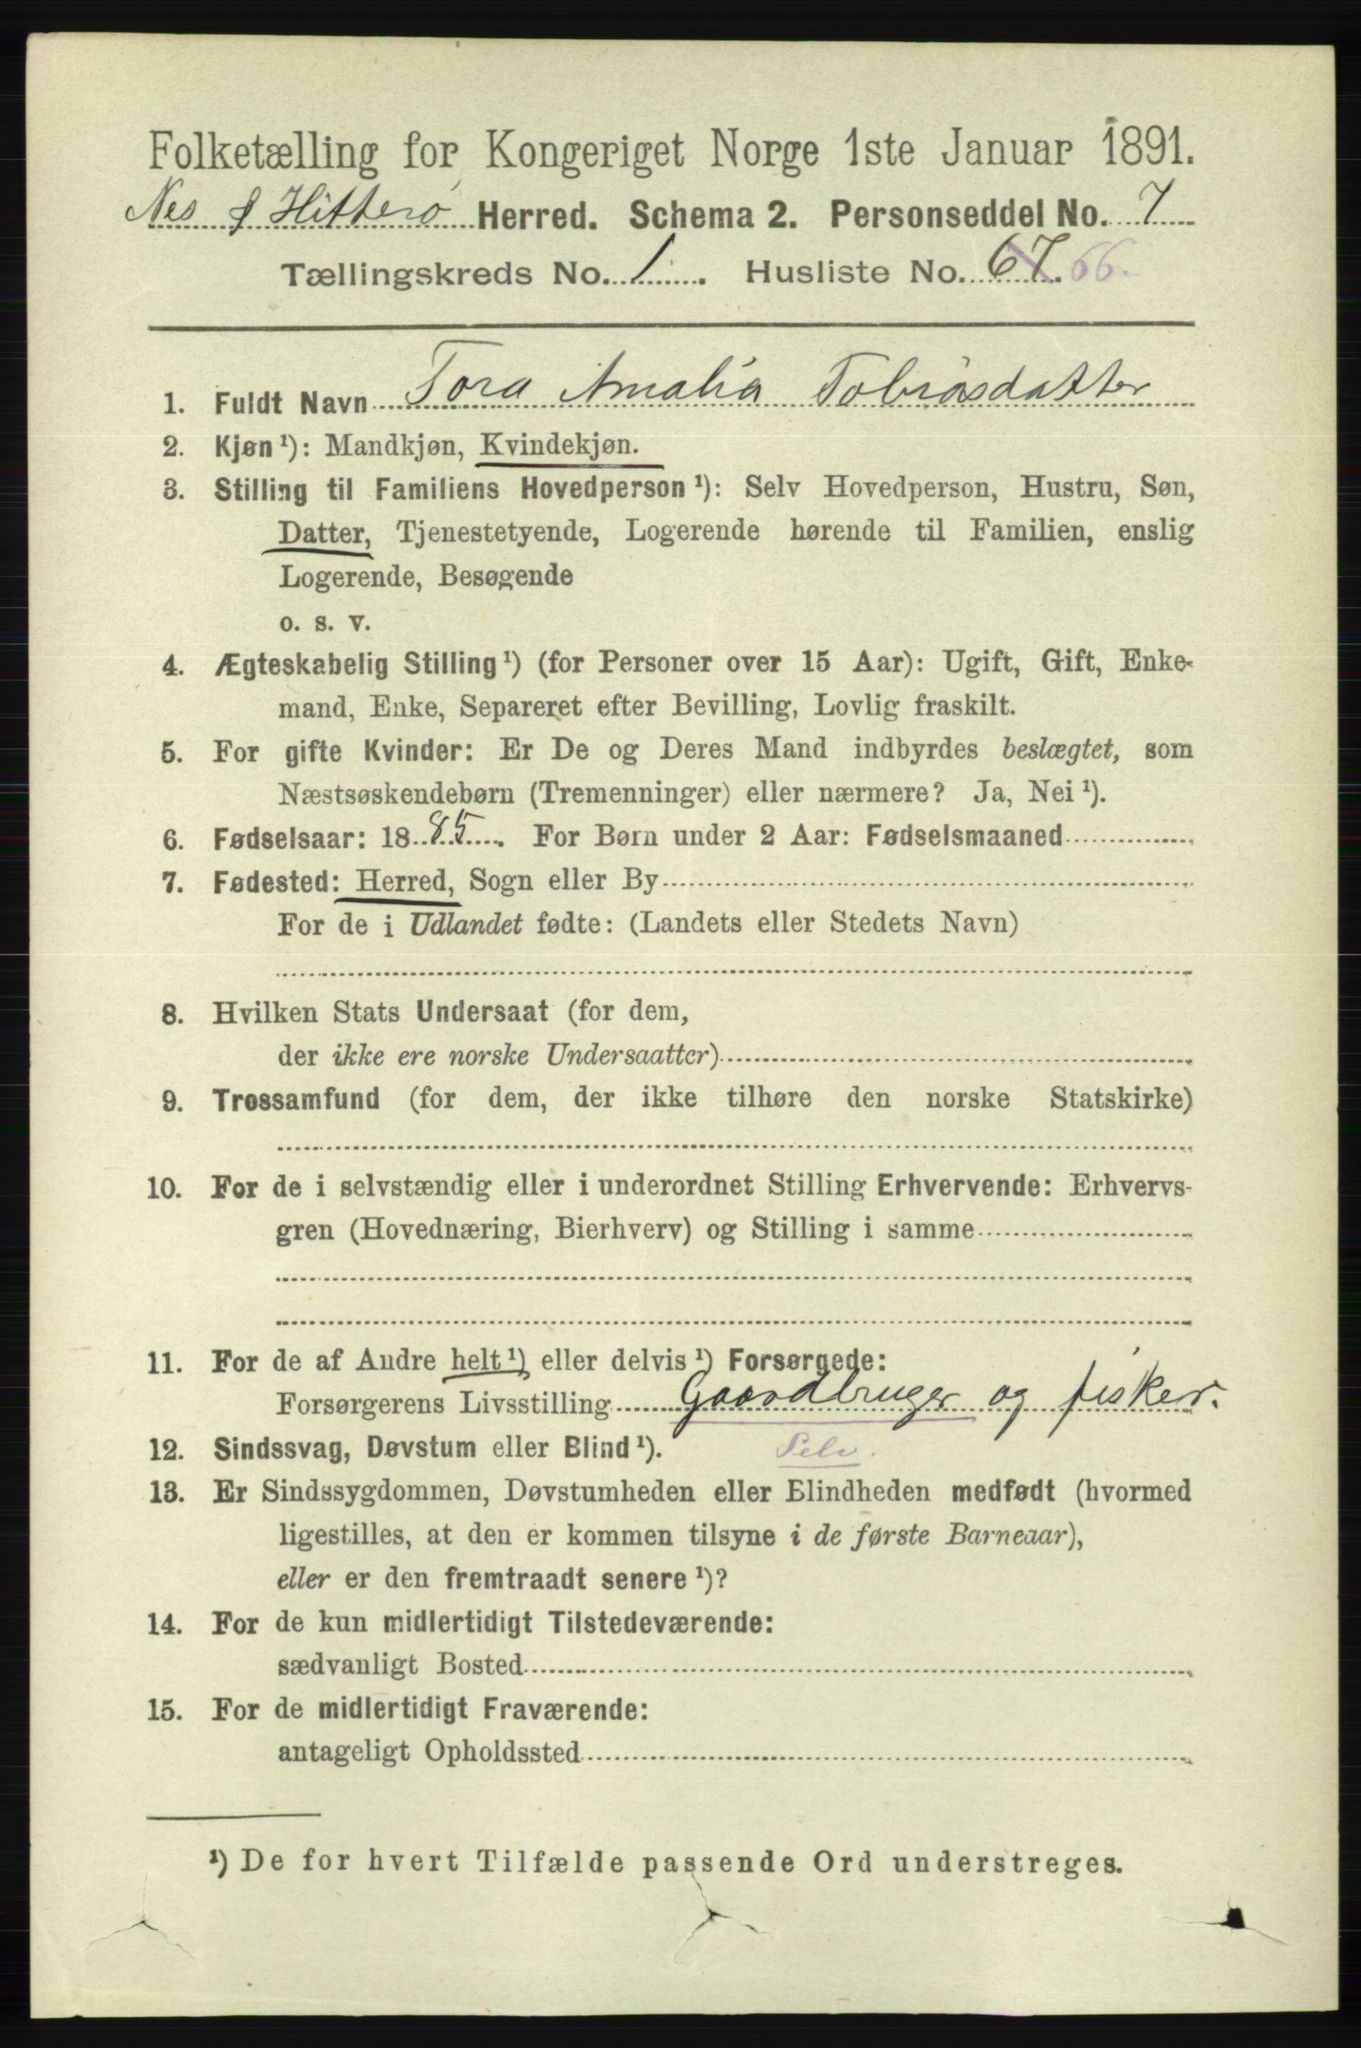 Folketælling for Kongeriget Norge 1ste Januar 1891.
Nes & Hitterø Herred. Schema 2. Personseddel No. 7
Tællingskreds No. 1. Husliste No. 67. 66.
1. Fuldt Navn Tora Amalia Tobiasdatter
2. Kjøn ¹): Mandkjøn, Kvindekjøn.
3. Stilling til Familiens Hovedperson ¹): Selv Hovedperson, Hustru, Søn,
Datter, Tjenestetyende, Logerende hørende til Familien, enslig
Logerende, Besøgende
o. s. v.
4. Ægteskabelig Stilling ¹) (for Personer over 15 Aar): Ugift, Gift, Enke-
mand, Enke, Separeret efter Bevilling, Lovlig fraskilt.
5. For gifte Kvinder: Er De og Deres Mand indbyrdes beslægtet, som
Næstsøskendebørn (Tremenninger) eller nærmere? Ja, Nei ¹).
6. Fødselsaar: 1885. For Børn under 2 Aar: Fødselsmaaned
7. Fødested: Herred, Sogn eller By
For de i Udlandet fødte: (Landets eller Stedets Navn)
8. Hvilken Stats Undersaat (for dem,
der ikke ere norske Undersaatter)
9. Trossamfund (for dem, der ikke tilhøre den norske Statskirke)
10. For de i selvstændig eller i underordnet Stilling Erhvervende: Erhvervs-
gren (Hovednæring, Bierhverv) og Stilling i samme
11. For de af Andre helt ¹) eller delvis ¹) Forsørgede:
Forsørgerens Livsstilling Gaardbruger og fisker.
12. Sindssvag, Døvstum eller Blind ¹). Selv.
13. Er Sindssygdommen, Døvstumheden eller Blindheden medfødt (hvormed
ligestilles, at den er kommen tilsyne i de første Barneaar),
eller er den fremtraadt senere ¹)?
14. For de kun midlertidigt Tilstedeværende:
sædvanligt Bosted
15. For de midlertidigt Fraværende:
antageligt Opholdssted
¹) De for hvert Tilfælde passende Ord understreges.